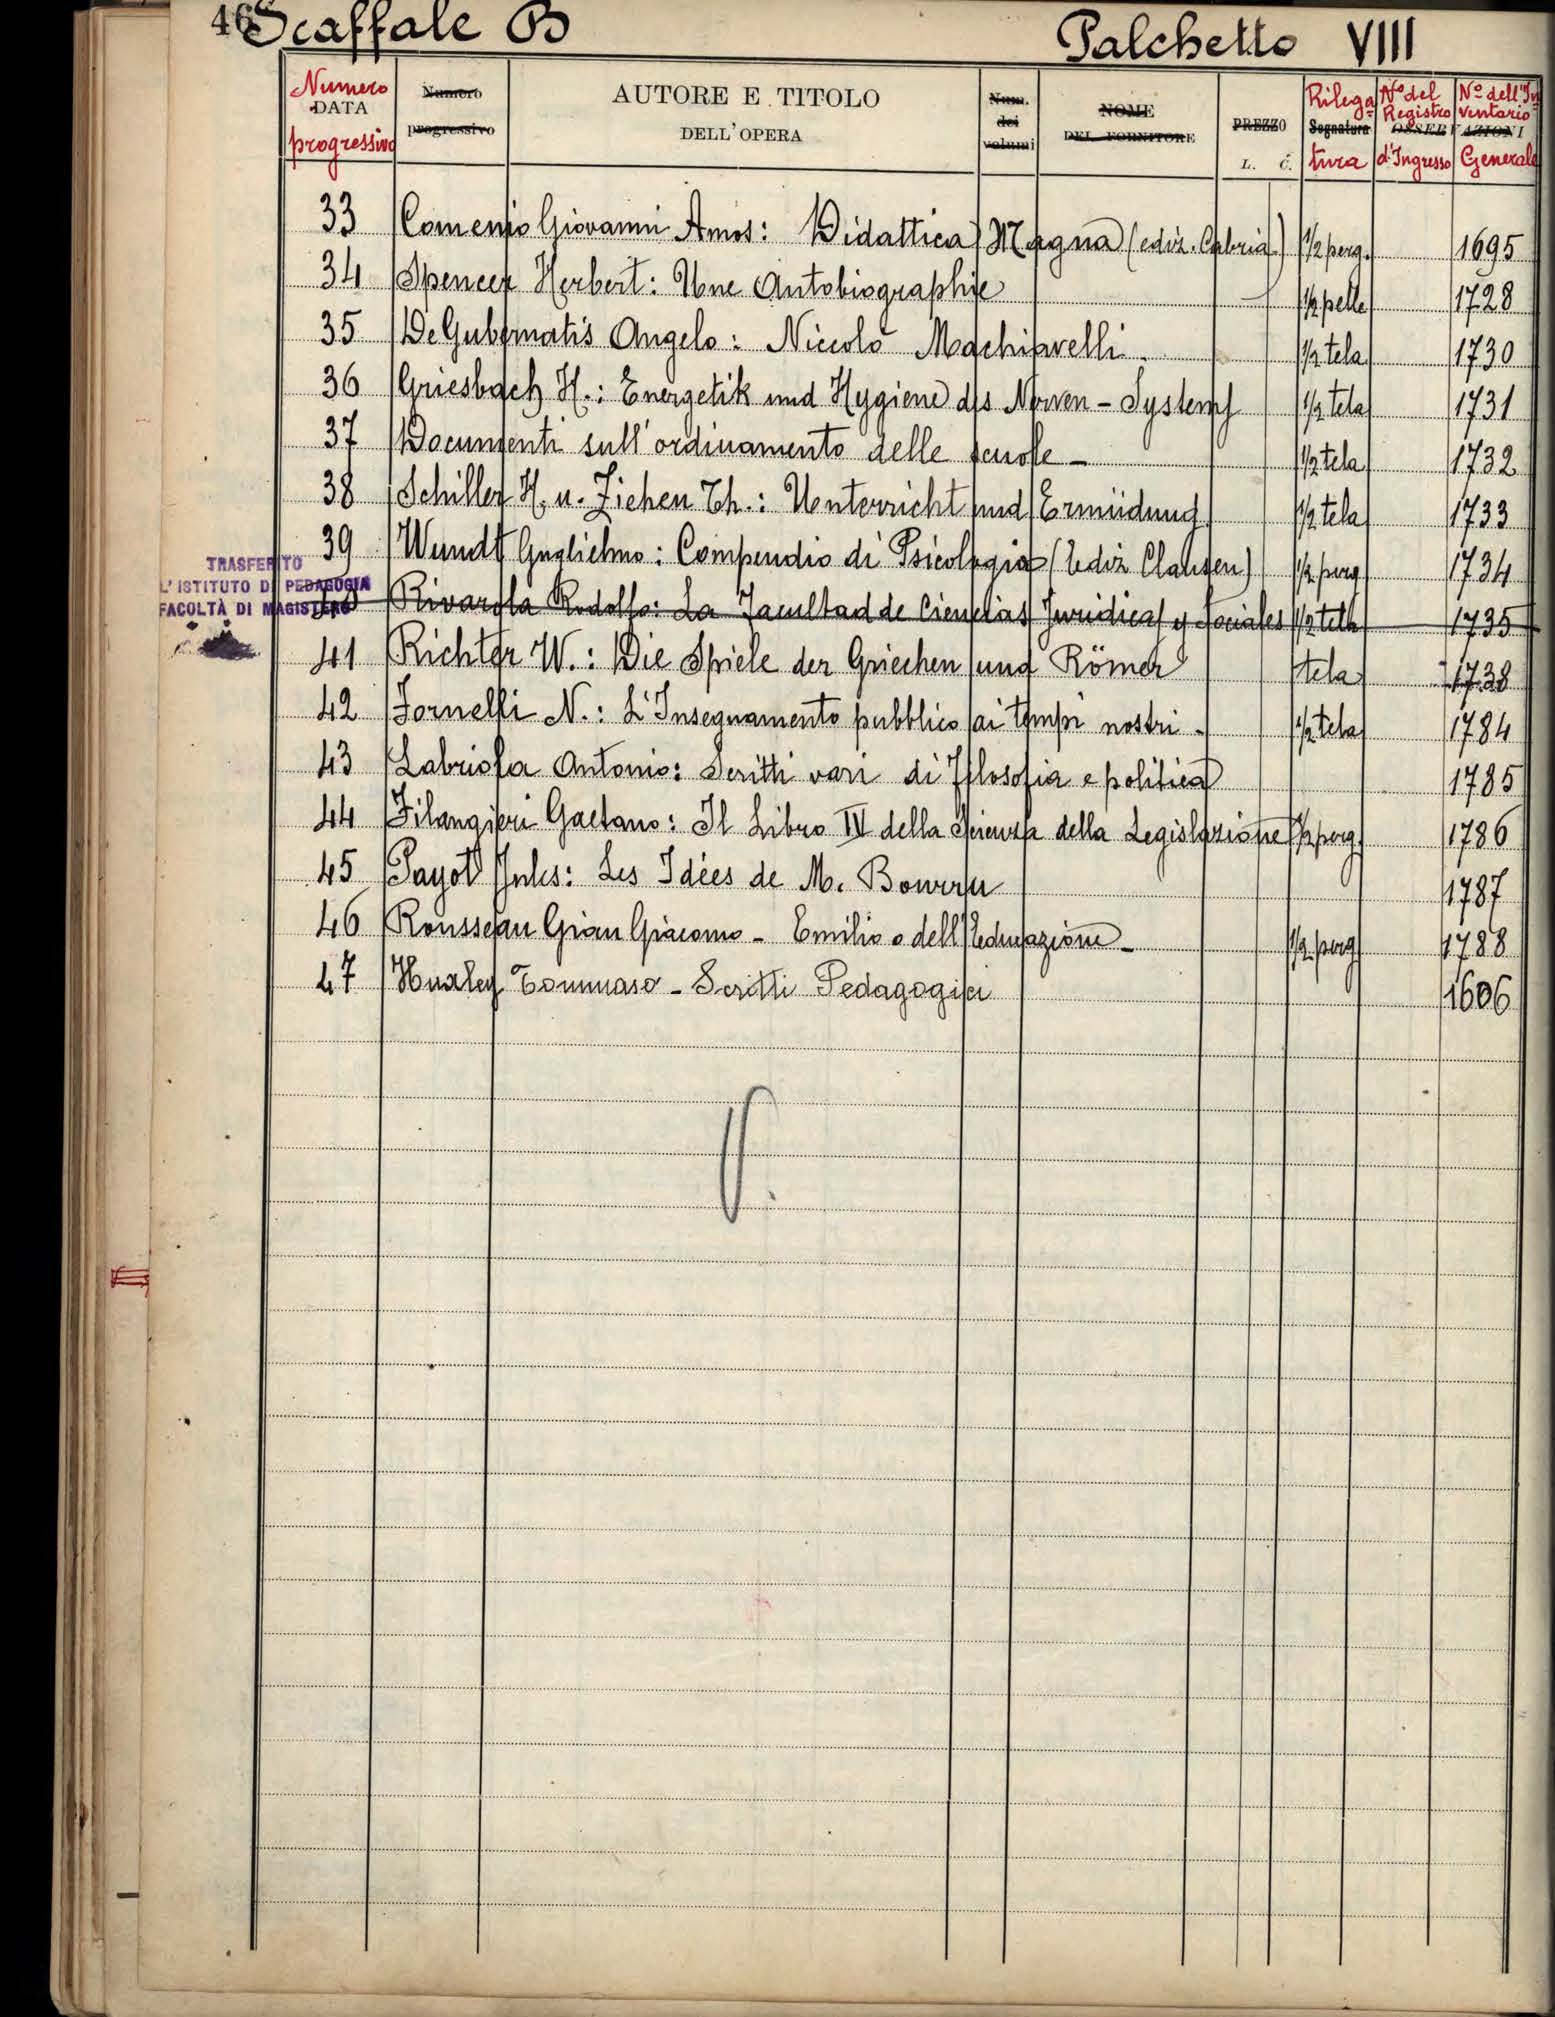 468 Scaffale B Palchetto VIII
Numero DATA progressivo | Numero progressivo | AUTORE E TITOLO DELL'OPERA | Num. dei volumi | NOME DEL FORNITORE | PREZZO L. C. | Rilega= Segnatura tura | Nº del Registro d'Ingresso | OSSERVAZIONI | Nº dell'In= ventario Generale
33 Comenio Giovanni Amos: Didattica Magna (ediz. Cabria) 1/2 perg. 1695
34 Spencer Herbert: Une Autobiographie 1/2 pelle 1728
35 De Gubernatis Angelo: Niccolò Machiavelli. 1/2 tela 1730
36 Griesbach H.: Energetik und Hygiene ds Nerven-Systems 1/2 tela 1731
37 Documenti sull'ordinamento delle scuole - 1/2 tela 1732
38 Schiller H. u. Ziehen Th.: Unterricht und Ermüdung 1/2 tela 1733
39 Wundt Guglielmo: Compendio di Psicologia (Ediz. Clausen) 1/2 perg 1734
TRASFERITO
L'ISTITUTO DI PEDAGOGIA
FACOLTÀ DI MAGISTERO
40 Rivarola Rodolfo: La Facultad de Ciencias Juridicas y Sociales 1/2 tela 1735
41 Richter W.: Die Spiele der Griechen und Römer tela 1738
42 Fornelli N.: L'Insegnamento pubblico ai tempi nostri - 1/2 tela 1784
43 Labriola Antonio: Scritti vari di Filosofia e politica 1785
44 Filangieri Gaetano: Il Libro IV della Scienza della Legislazione 1/2 perg. 1786
45 Payot Jules: Les Idées de M. Bourru 1787
46 Rousseau Gian Giacomo - Emilio o dell'Educazione - 1/2 perg 1788
47 Huxley Tommaso - Scritti Pedagogici 1606
V.